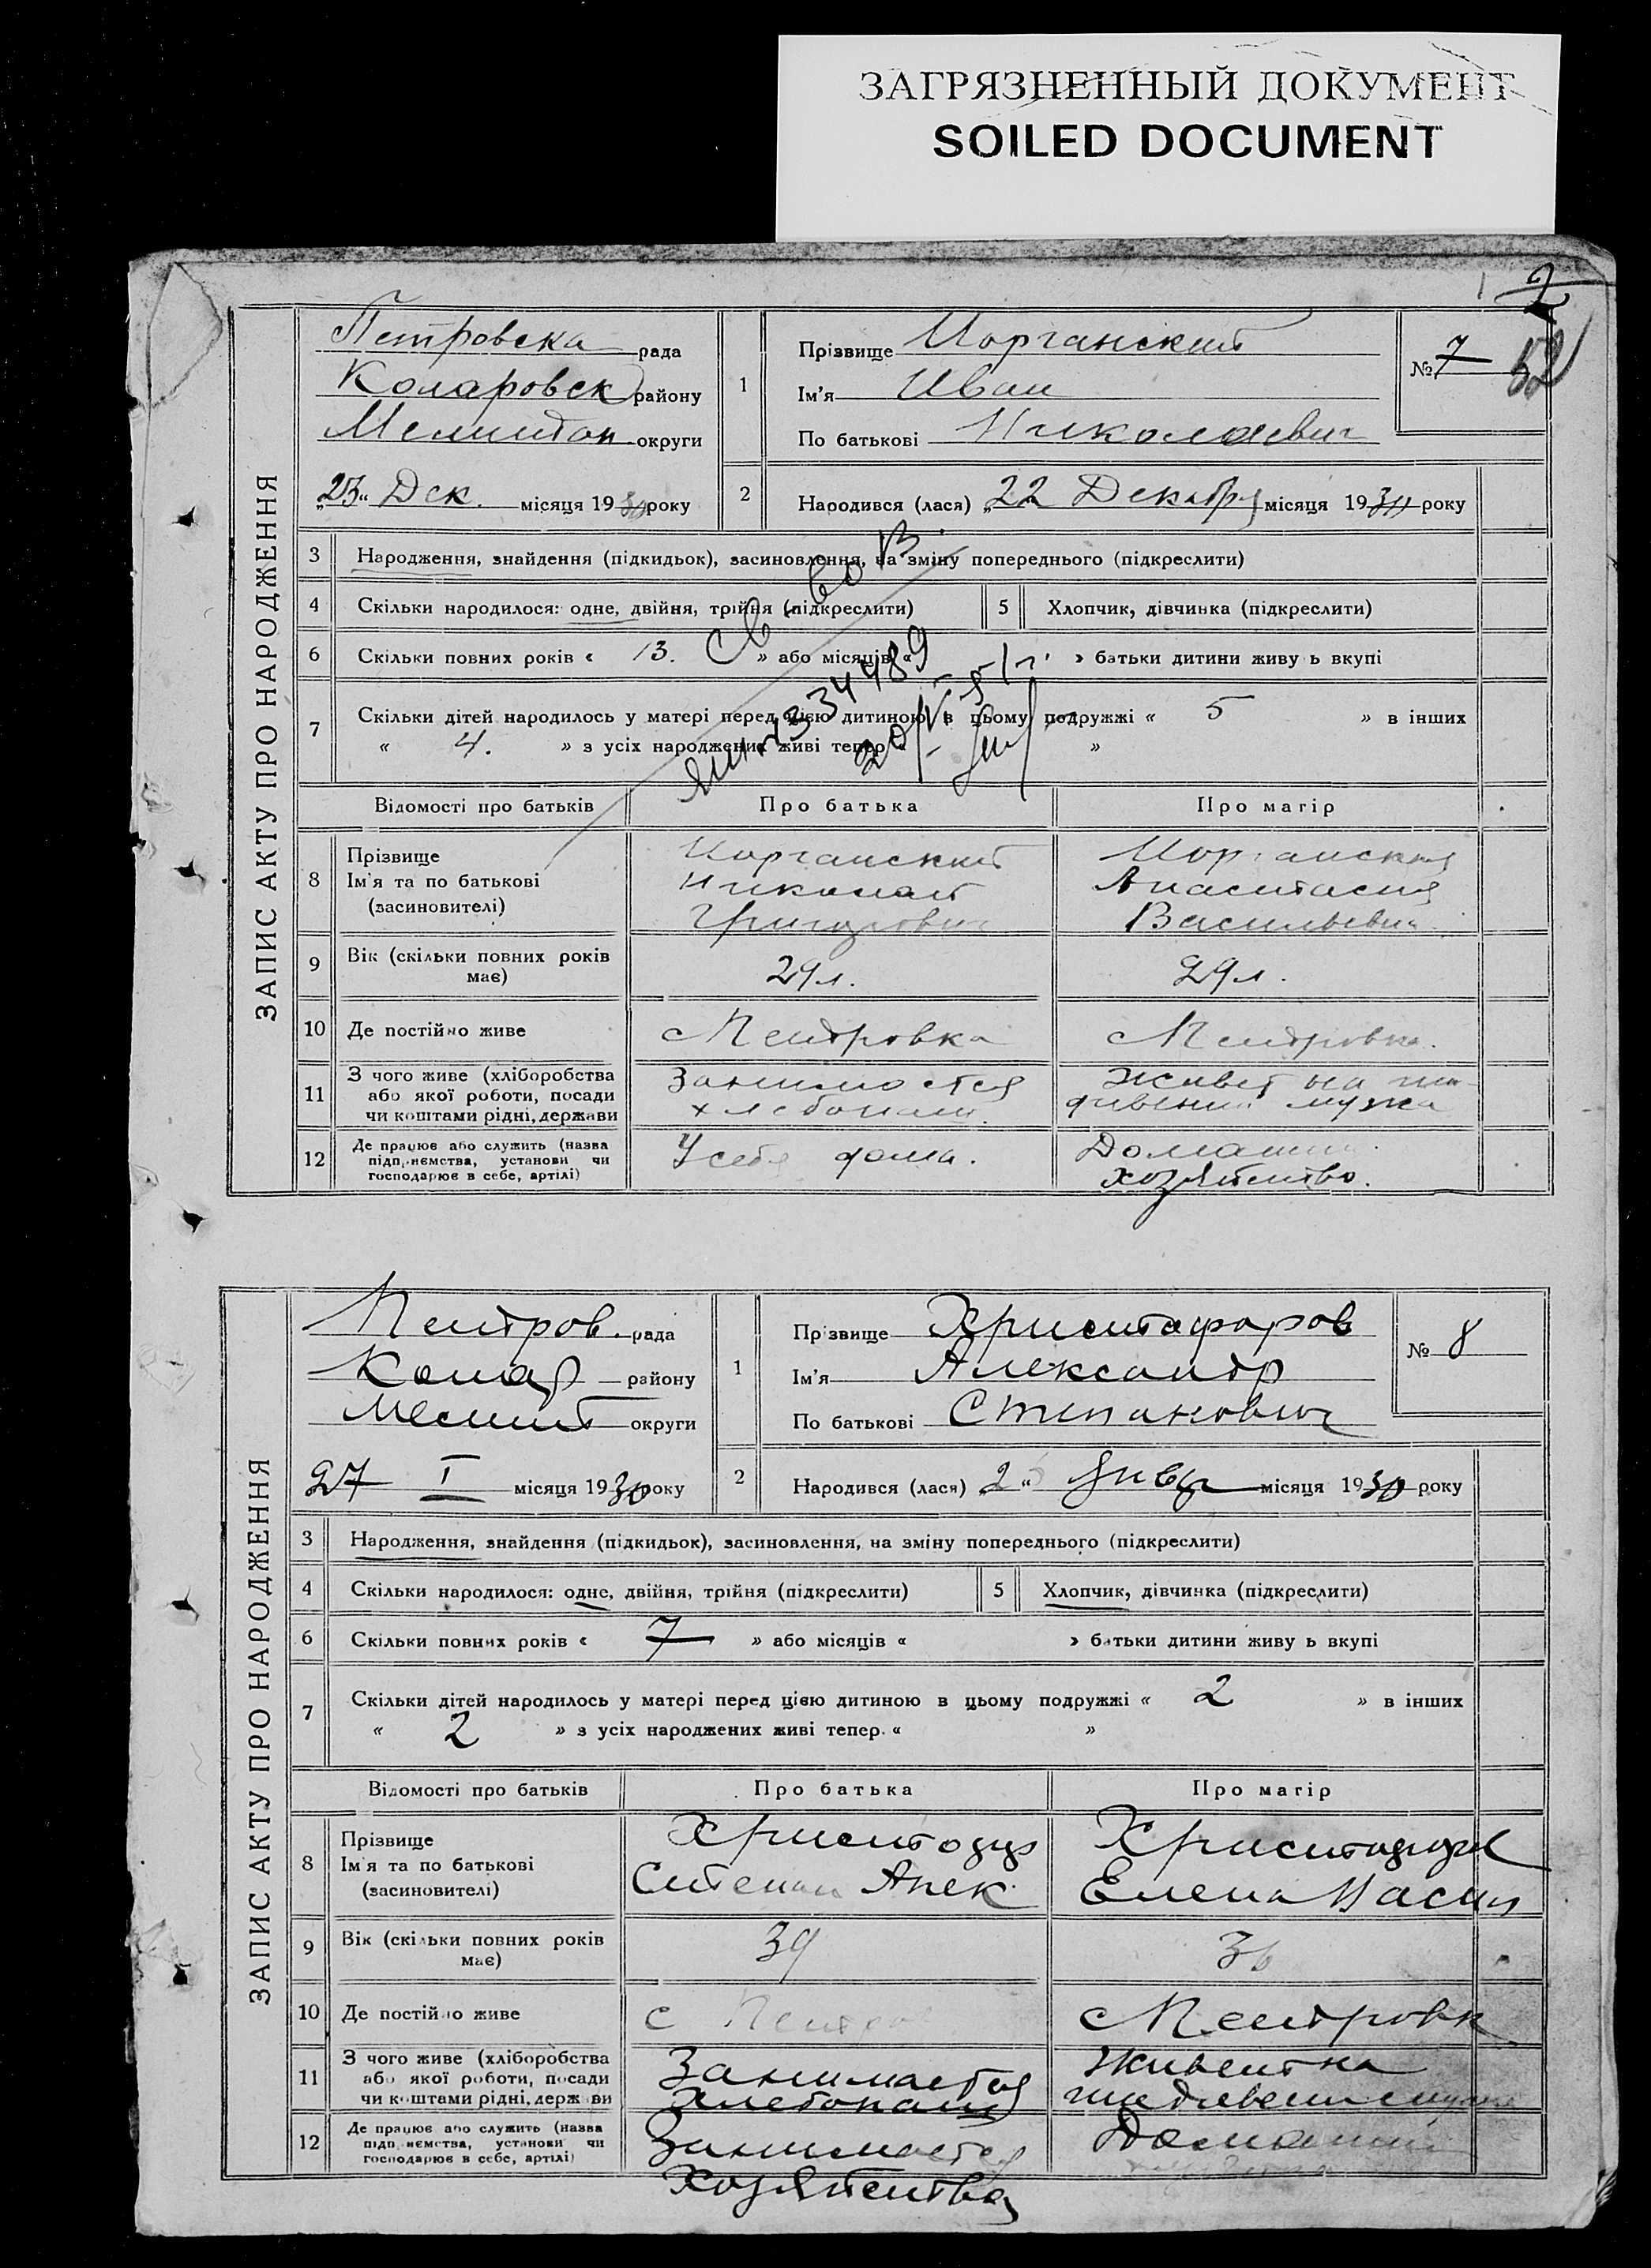 ЗАГРЯЗНЕННЫЙ ДОКУМЕНТ
SOILED DOCUMENT
2
52
ЗАПИС АКТУ ПРО НАРОДЖЕННЯ
Петровска рада
Коларовск району
Мелитоп округи
"23" Дек. місяця 1930 року
1
Прізвище Иорганский
Ім'я Иван
По батькові Николаевич
№ 7
2 Народився (лася) "22 Декабря місяця 1930 року
3 Народження, знайдення (підкидьок), засиновлення, на зміну попереднього (підкреслити)
4 Скільки народилося: одне, двійня, трійня (підкреслити) 5 Хлопчик, дівчинка (підкреслити)
6 Скільки повних років « 13. » або місяців « » батьки дитини живу ь вкупі
7 Скільки дітей народилось у матері перед цією дитиною в цьому подружжі « 5 » в інших
« 4. » з усіх народжених живі тепер « »
Відомості про батьків Про батька Про матір
8 Прізвище Иорганский Иорганская
Ім'я та по батькові Николай Анастасия
(засиновителі) Григорович Васильевна
9 Вік (скільки повних років має) 29 л. 29 л.
10 Де постійно живе с Петровка с Петровка.
11 З чого живе (хліборобства Занимается живет на
або якої роботи, посади мужа
чи коштами рідні, держави
12 Де працює або служить (назва У себя дома. Домашн.
підприємства, установи чи хозяйство.
господарює в себе, артілі)
ЗАПИС АКТУ ПРО НАРОДЖЕННЯ
Петров. рада
Колар району
Мелит округи
27 I місяця 1930 року
1
Прізвище Христофоров
Ім'я Александр
По батькові Степанович
№ 8
2 Народився (лася) " " Янва місяця 1930 року
3 Народження, знайдення (підкидьок), засиновлення, на зміну попереднього (підкреслити)
4 Скільки народилося: одне, двійня, трійня (підкреслити) 5 Хлопчик, дівчинка (підкреслити)
6 Скільки повних років « 7 » або місяців « » батьки дитини живу ь вкупі
7 Скільки дітей народилось у матері перед цією дитиною в цьому подружжі « 2 » в інших
« 2 » з усіх народжених живі тепер. « »
Відомості про батьків Про батька Про матір
8 Прізвище
Ім'я та по батькові Степан Алек. Елена Васил
(засиновителі)
9 Вік (скільки повних років має) 39
10 Де постійно живе с Петров с Петровк
11 З чого живе (хліборобства Занимается Живет на
або якої роботи, посади
чи коштами рідні, держави
12 Де працює або служить (назва Занимается Домашн
підприємства, установи чи
господарює в себе, артілі)
Хозяйства